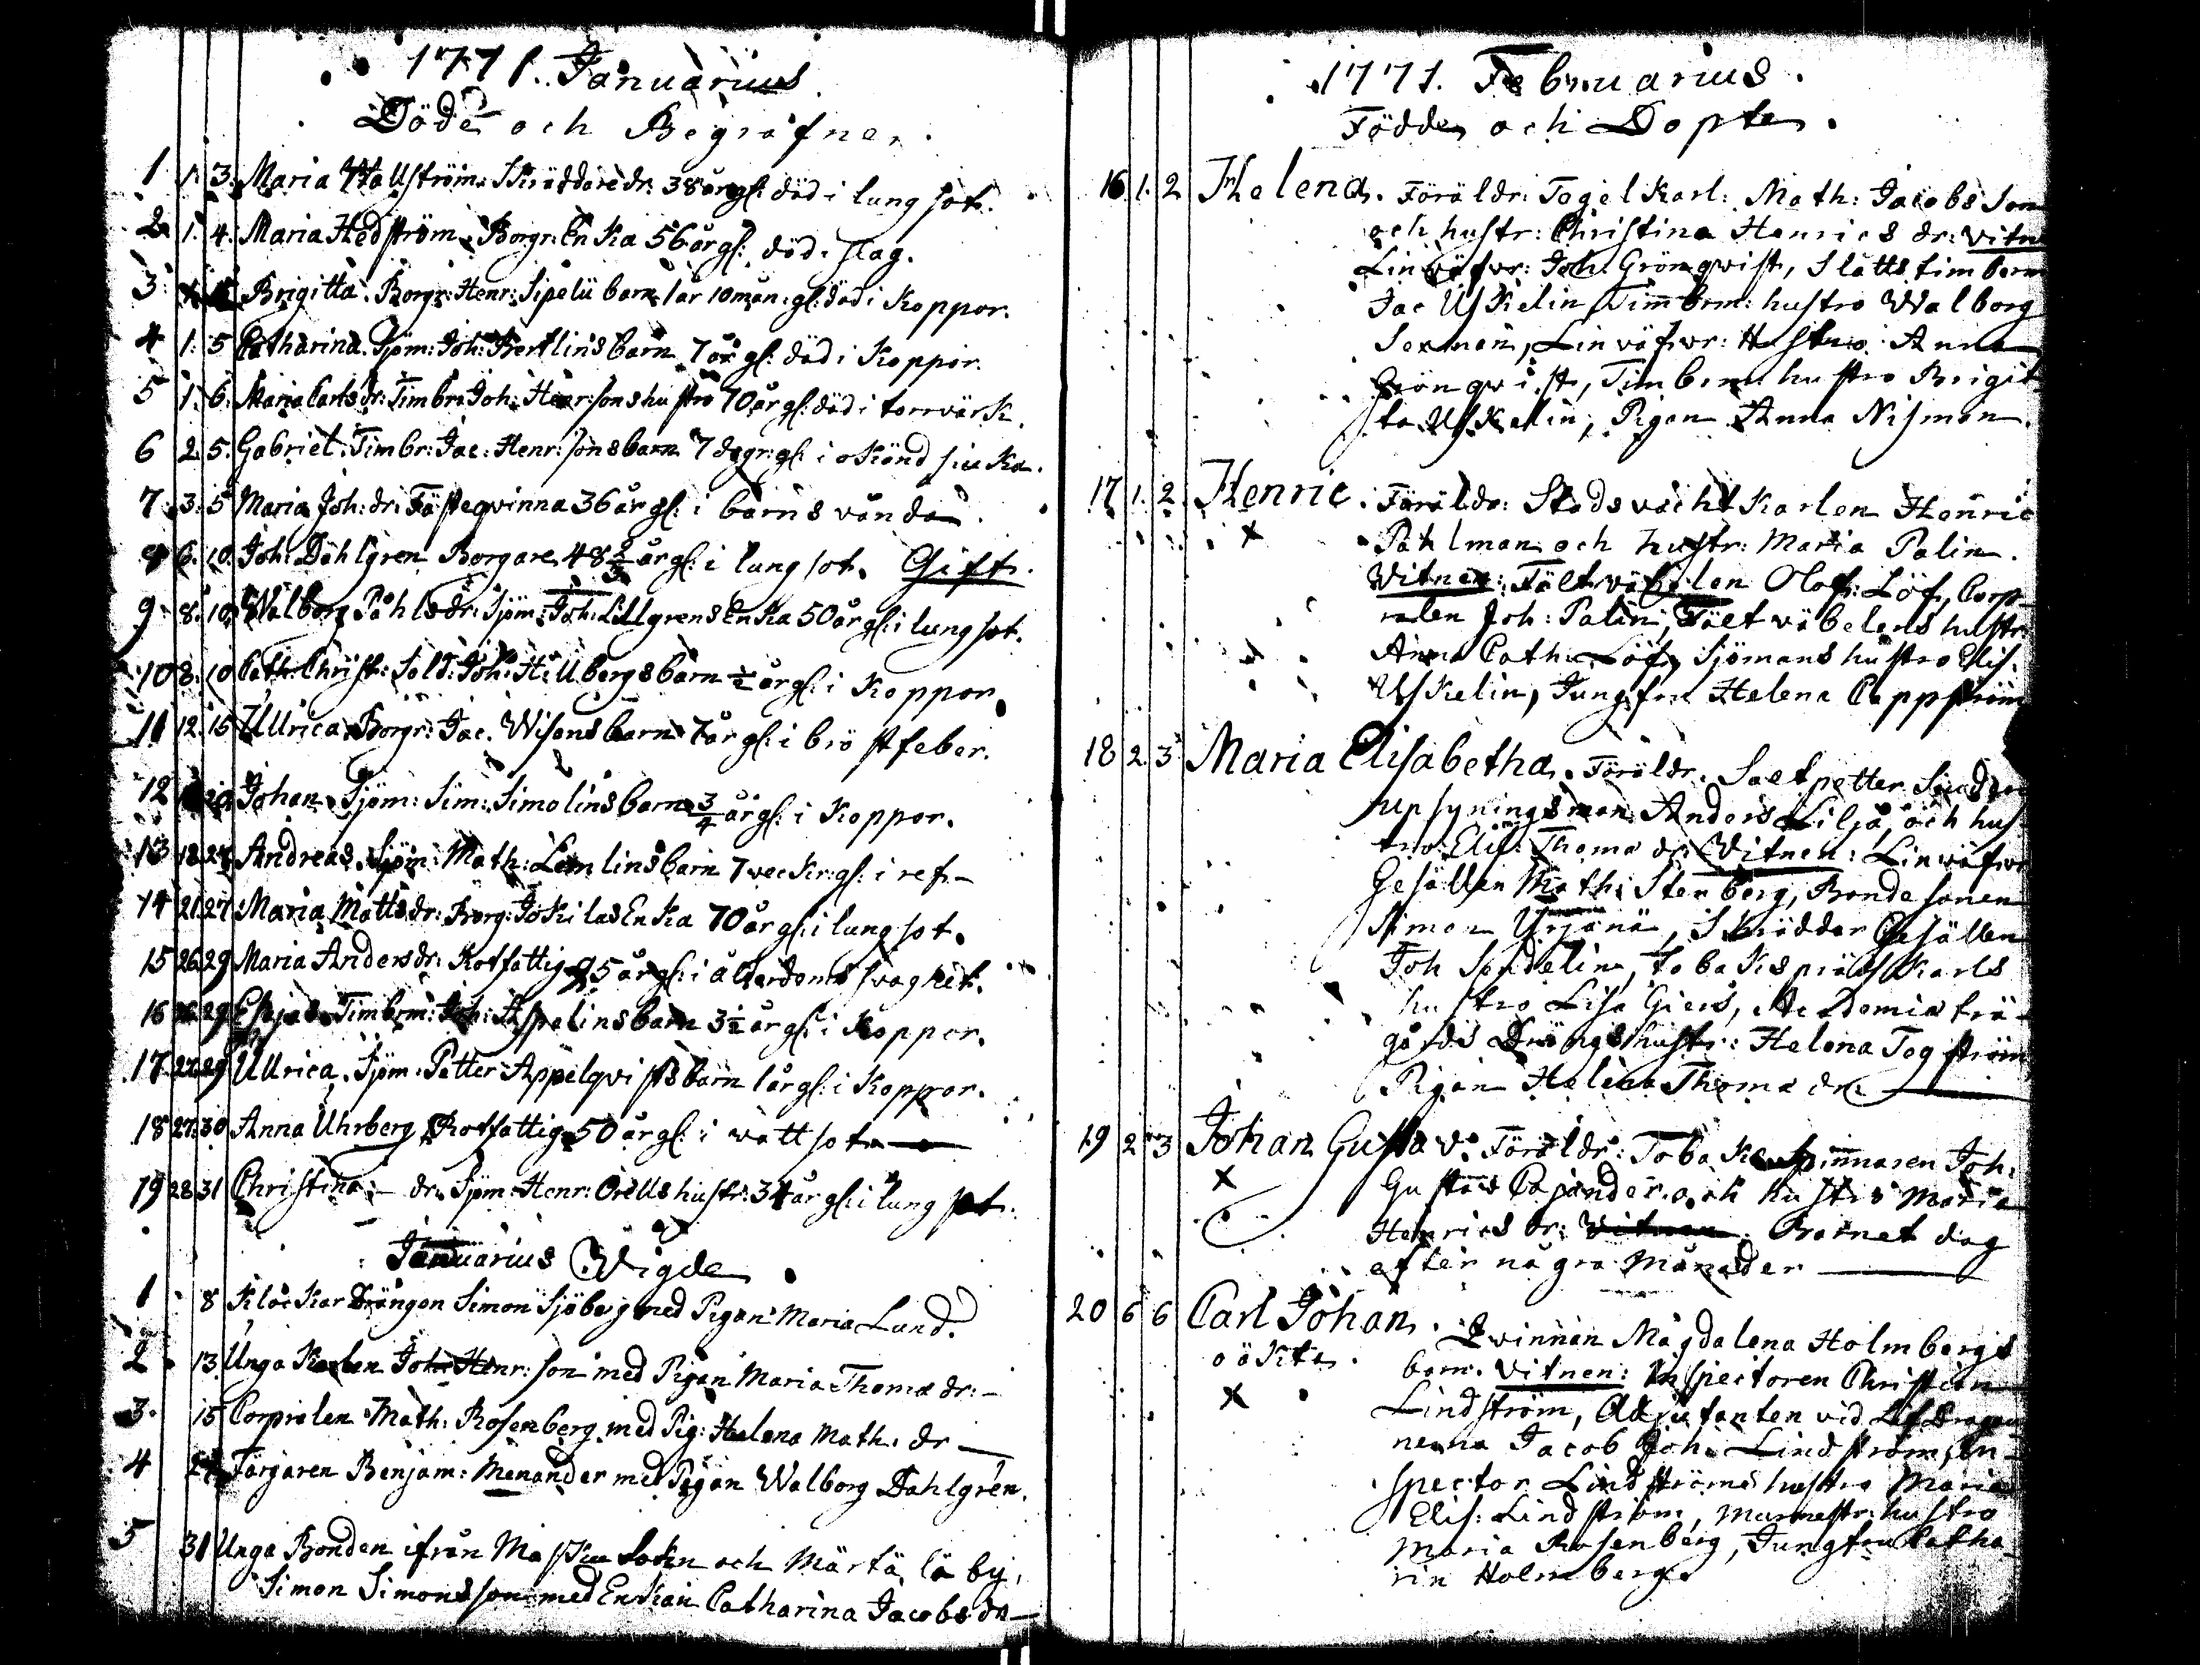 1771. Januarius
Döde och Begrafne.
1 1. 3. Maria Wallström. Skräddaredr: 38 år gl: död i lungsot.
2 1. 4. Maria Hedström. Borgr: Enka 56 år gl: död i slag.
3 Brigitta. Borgr: Henr: Sipelii barn 1 år 10 mån: gl: död i Koppor.
4 1. 5 Catharina. Sjöm: Joh: Bertlins barn 7 år gl: död i Koppor.
5 1. 6. Maria Carlsdr: Timbr: Joh: Henr:sons hustro 70 år gl: död i torrvärk.
6 2. 5. Gabriel. Timbr: Jac: Henr:sons barn 7 dagr: gl: i okänd siuka.
7 3. 5 Maria Joh:dr: Fästeqvinna 36 år gl: i barnsvånda.
8 6. 10. Joh: Dahlgren Borgare 48 2/3 år gl: i lungsot. Gift.
9 8. 10. Walborg Påhlsdr: Sjöm: Joh: Lillgrens Enka 50 år gl: i lungsot.
10 8. 10 Cath: Christ: Sold: Joh: Hillbergs barn 1/2 år gl: i Koppor.
11 12. 15 Ullrica Borgr: Jac. Wisens barn 7 år gl: i bröstfeber.
12 20. Johan Sjöm: Sim: Simolins barn 3/4 år gl: i Koppor.
13 18. Andreas. Sjöm: Math: Lemlins barn 7 veckr: gl: i ref.
14 21. 27 Maria Mattsdr: Borg: Jokilas Enka 70 år gl: i lungsot.
15 26. 29 Maria Andersdr: Rotfattig 95 år gl: i ålderdoms svaghet.
16 26. 29 Esajas. Timbrm: Joh: Aspelins barn 3 1/2 år gl: i Koppor.
17 27. 29 Ullrica. Sjöm: Petter Appelqvists barn 1 år gl: i Koppor.
18 27. 30 Anna Uhrberg Rotfattig 50 år gl: i wattsot
19 28. 31 Christina - dr: Sjöm: Henr: Orells hustr: 34 år gl: i lungsot.
Januarius Vigde
1 8 Klockar Drängen Simon Sjöberg med Pigan Maria Lund.
2 13 Unga Karlen Joh: Henr:son med Pigan Maria Thomædr:
3 15 Corpralen Math: Rosenberg med Pig: Helena Math: dr
4 Färgaren Benjam: Menander med Pigan Walborg Dahlgren.
5 31 Unga Bonden ifrån Masku Sokn och Märtälä by,
Simon Simonsson med Enkian Catharina Jacobsdr
1771. Februarius.
Födde och Dopte.
16 1. 2 Helena. Föräldr: Tegelkarl: Math: Jacobsson
och hustr: Christina Henricsdr: Vitn
Linväfvr: Joh: Grönqvist, Slåttstimberm
Jac Uskelin Timbrm: hustro Walborg
Sexman, Linväfvr: Hustro Anna
Grönqvist, Timberm: hustro Brigit
ta Uskelin, Pigan Anna Nisman.
17 1. 2. Henric. Föräldr: Stadsvachtkarlen Henric
x Påhlman och hustr: Maria Palin.
Vitnen: Fältväbelen Olof Löf, Corp-
ralen Joh: Palin, Fältväbelens hustr
Anna Cath: Löf, Sjömans hustro Elis.
Uskelin, Jungfru Helena Coppström
18 2. 3 Maria Elisabetha. Föräldr. Saltpetter Siuderi
upsyningsman Anders Lilja, och hus
tro Elis: Thomædr: Vitnen: Linväfvr
Gesällen Math: Stenberg, Bondesonen
Simon Yrjänä, Skräddar Gesällen
Joh Sundelin, tobakspräss Karls
hustro Lisa Giers, Academiæ trä-
gårds Drängs hustr: Helena Tegström
Pigan Helena Thomædr:
19 2 3 Johan Gustav. Föräldr: Tobaks Spinnaren Joh:
x Gustav Cajander och hustro Maria
Henricsdr: Vitnen. Barnet dog
efter några Månader
20 6 6 Carl Johan. Qvinnan Magdalena Holmbergs
oäkta. barn. Vitnen: Inspectoren Christian
x Lindström, Adjutanten vid Lif Dragou
nerna Jacob Joh: Lindström, In-
spector Lindströms hustro Maria
Elis: Lindström, Murmestr: hustro
Maria Rosenberg, Jungfru Catha-
rin Holmberg.